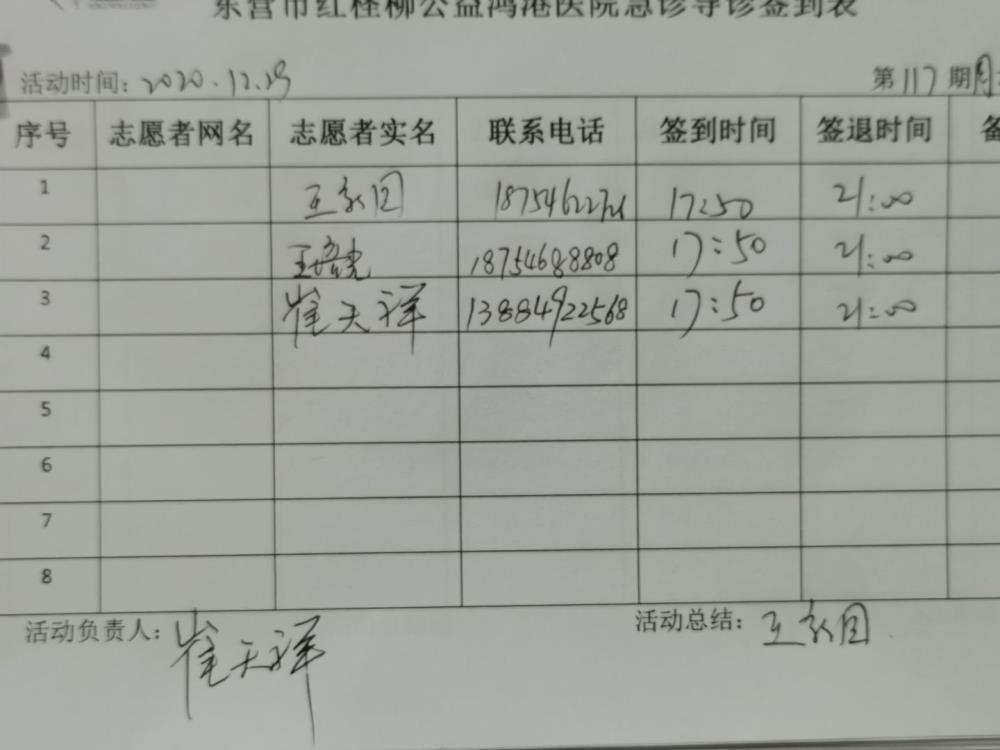 东营市红柽柳公益鸿港医院急诊导诊签到表
活动时间：2020.12.29 第117期
序号 志愿者网名 志愿者实名 联系电话 签到时间 签退时间 备
1 17:50 21:00
2 18754688808 17:50 21:00
3 崔天祥 13884922568 17:50 21:00
4
5
6
7
8
活动负责人：崔天祥 活动总结：